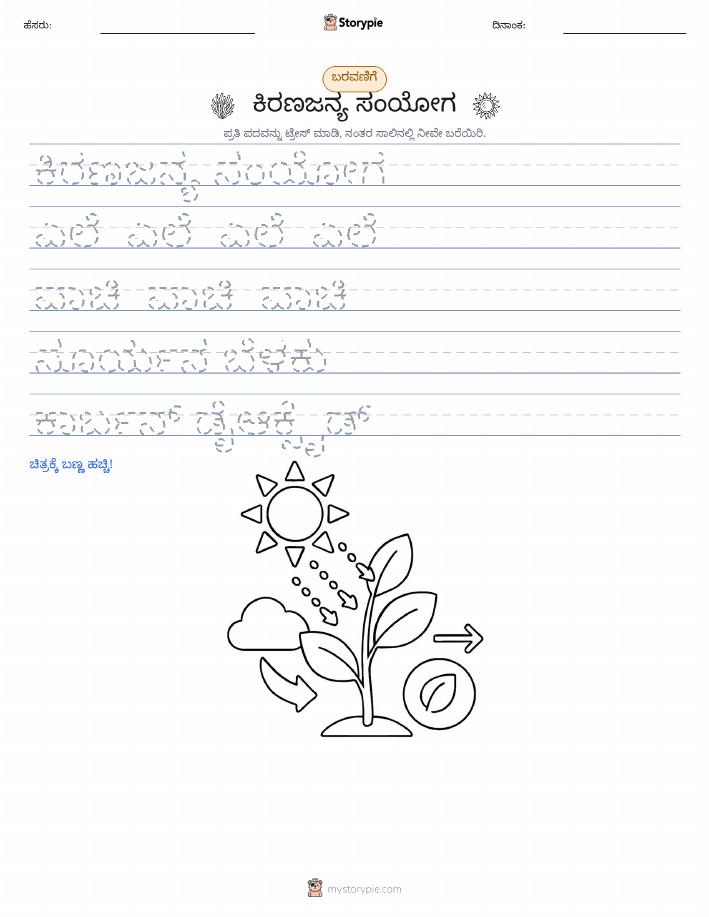 ಹೆಸರು:
Storypie
ದಿನಾಂಕ:
ಬರವಣಿಗೆ
ಕಿರಣಜನ್ಯ ಸಂಯೋಗ
ಪ್ರತಿ ಪದವನ್ನು ಟ್ರೇಸ್ ಮಾಡಿ, ನಂತರ ಸಾಲಿನಲ್ಲಿ ನೀವೇ ಬರೆಯಿರಿ.
ಕಿರಣಜನ್ಯ ಸಂಯೋಗ
ಎಲೆ ಎಲೆ ಎಲೆ ಎಲೆ
ಪಾಚಿ ಪಾಚಿ ಪಾಚಿ
ಸೂರ್ಯನ ಬೆಳಕು
ಕಾರ್ಬನ್ ಡೈಆಕ್ಸೈಡ್
ಚಿತ್ರಕ್ಕೆ ಬಣ್ಣ ಹಚ್ಚಿ!
mystorypie.com